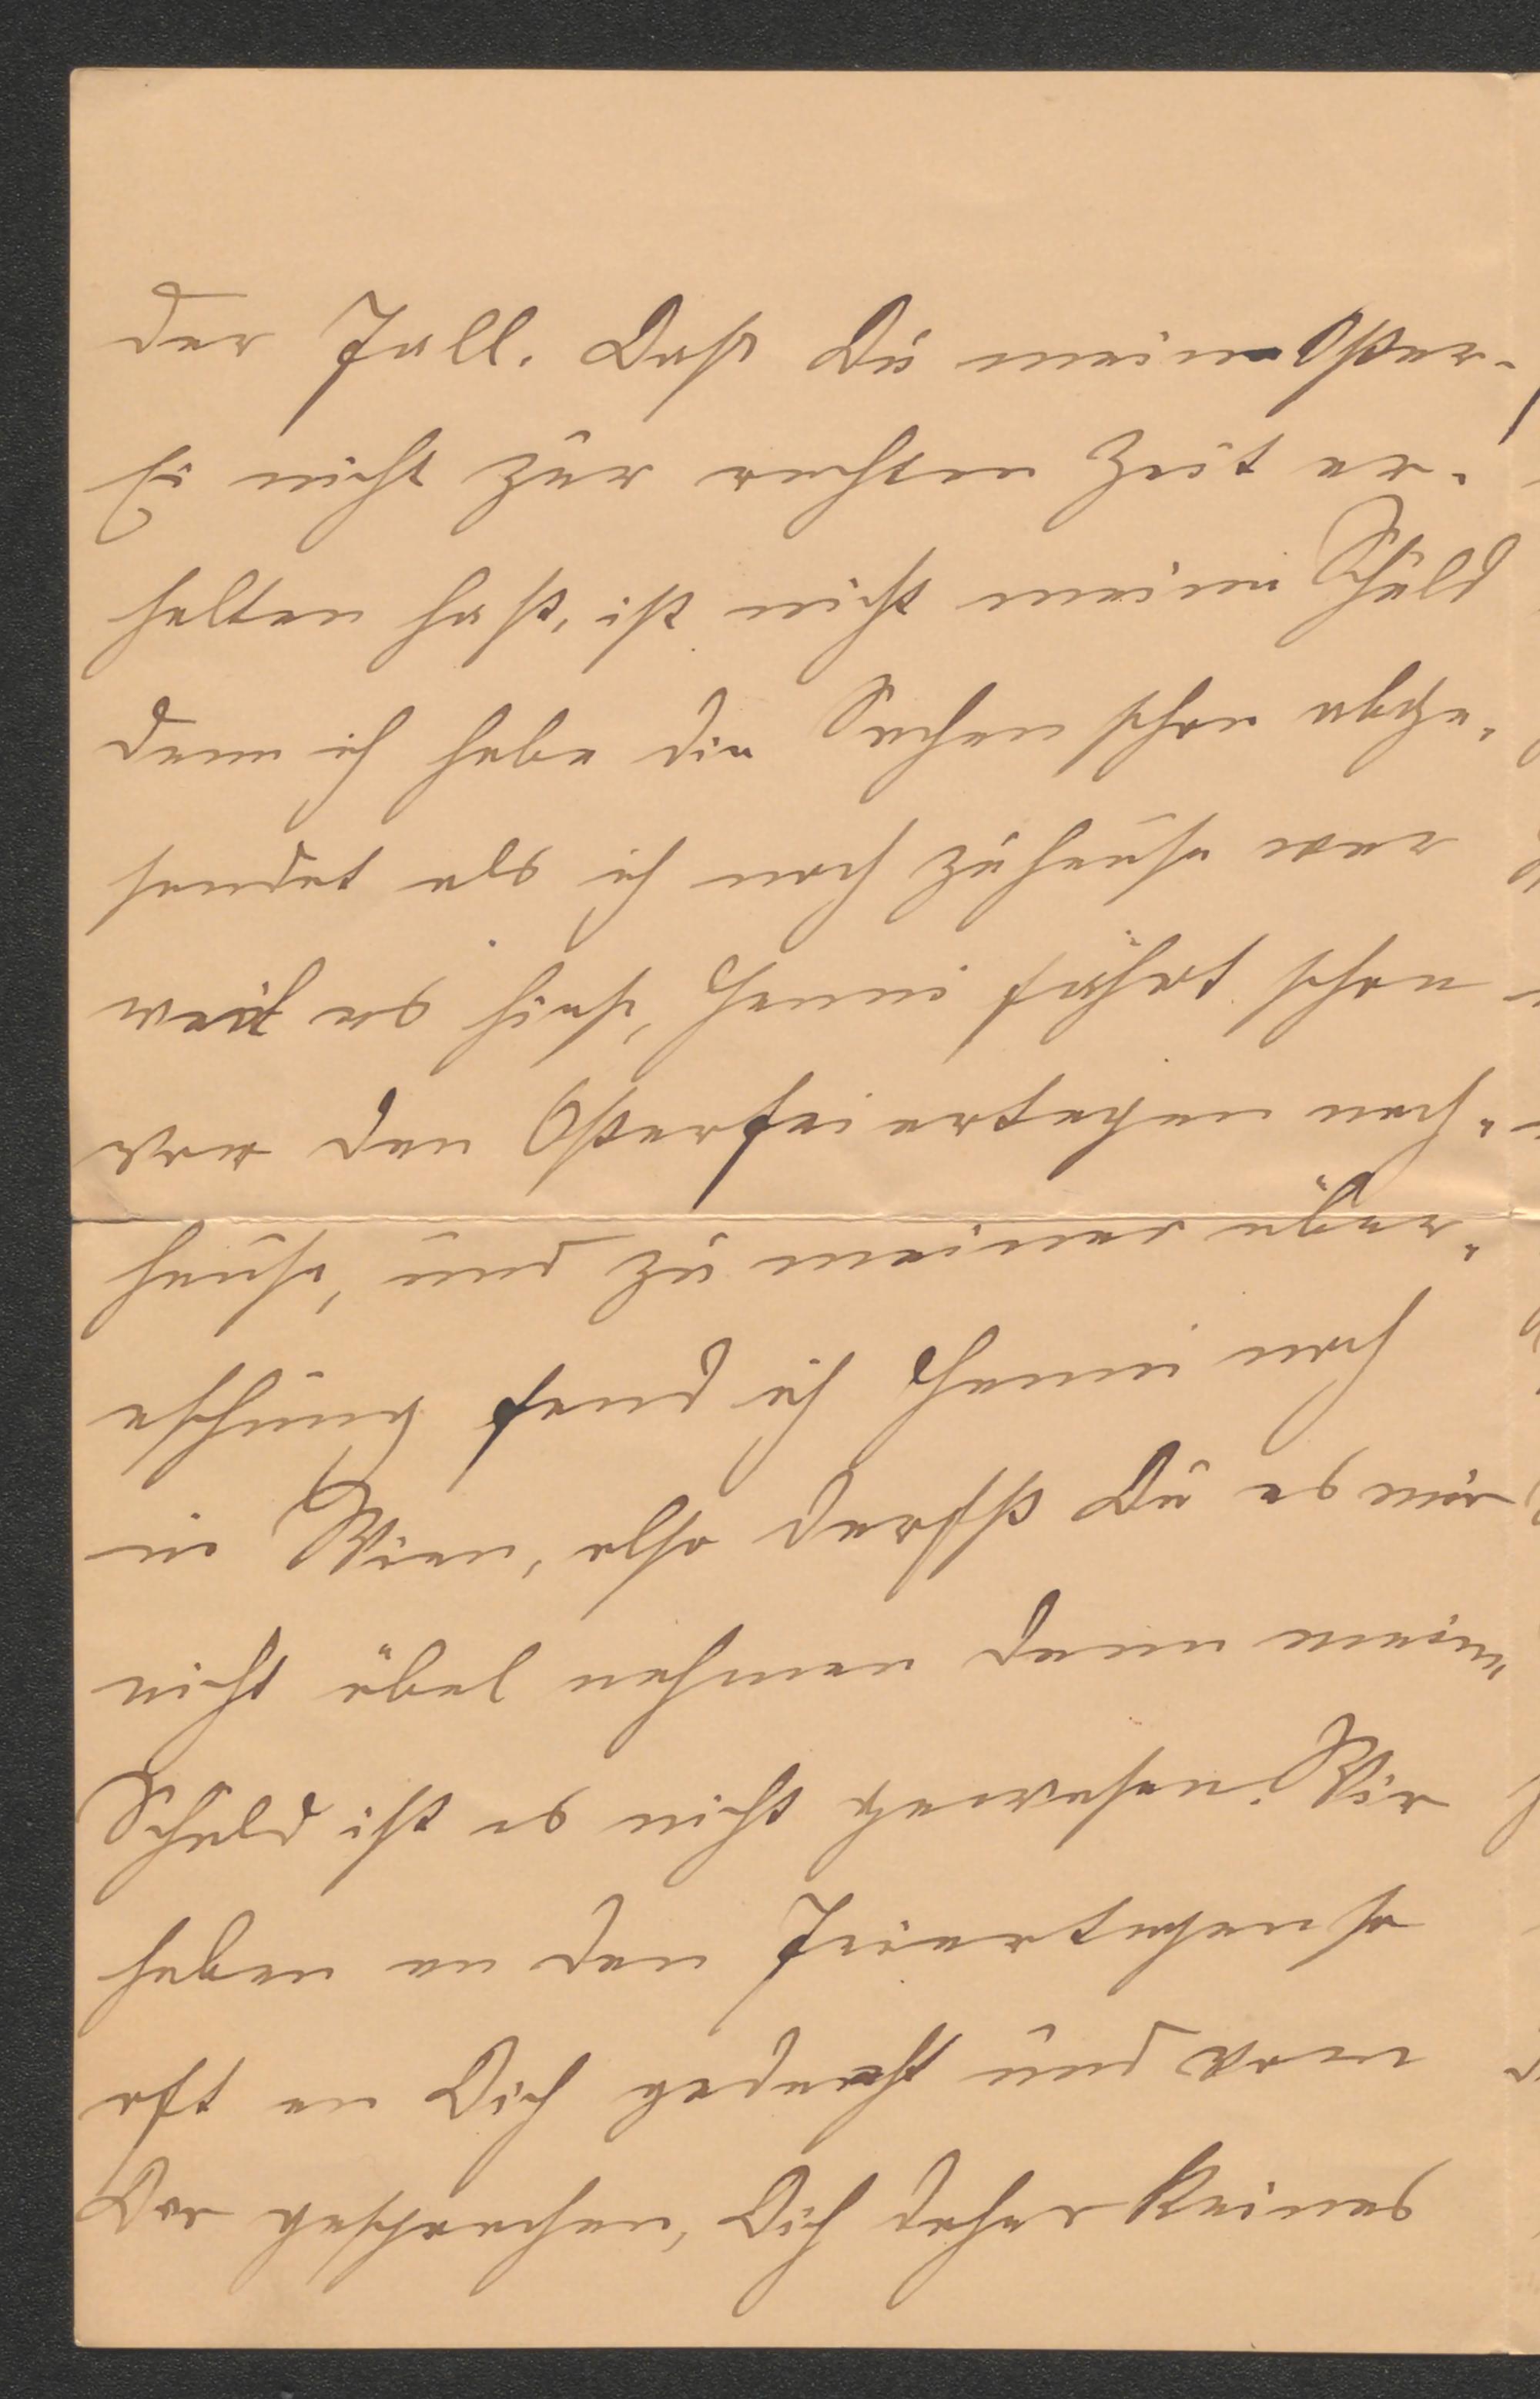 der Fall. Daß Du mein Oster-
Ei nicht zur rechten Zeit er-
halten hast, ist nicht meine Schuld
denn ich habe die Sachen schon abge-
sendet als ich noch zuhause war
weil es hieß, Hanni fährt schon
vor den Osterfeiertagen nach-
hause, und zu meiner über-
aschung fand ich Hanni noch
in Wien, also darfst Du es mir
nicht übel nehmen denn meine
Schuld ist es nicht gewesen. Wir
haben an den Feiertagen so
oft an Dich gedacht und von
Dir gesprochen, Dich daher keines